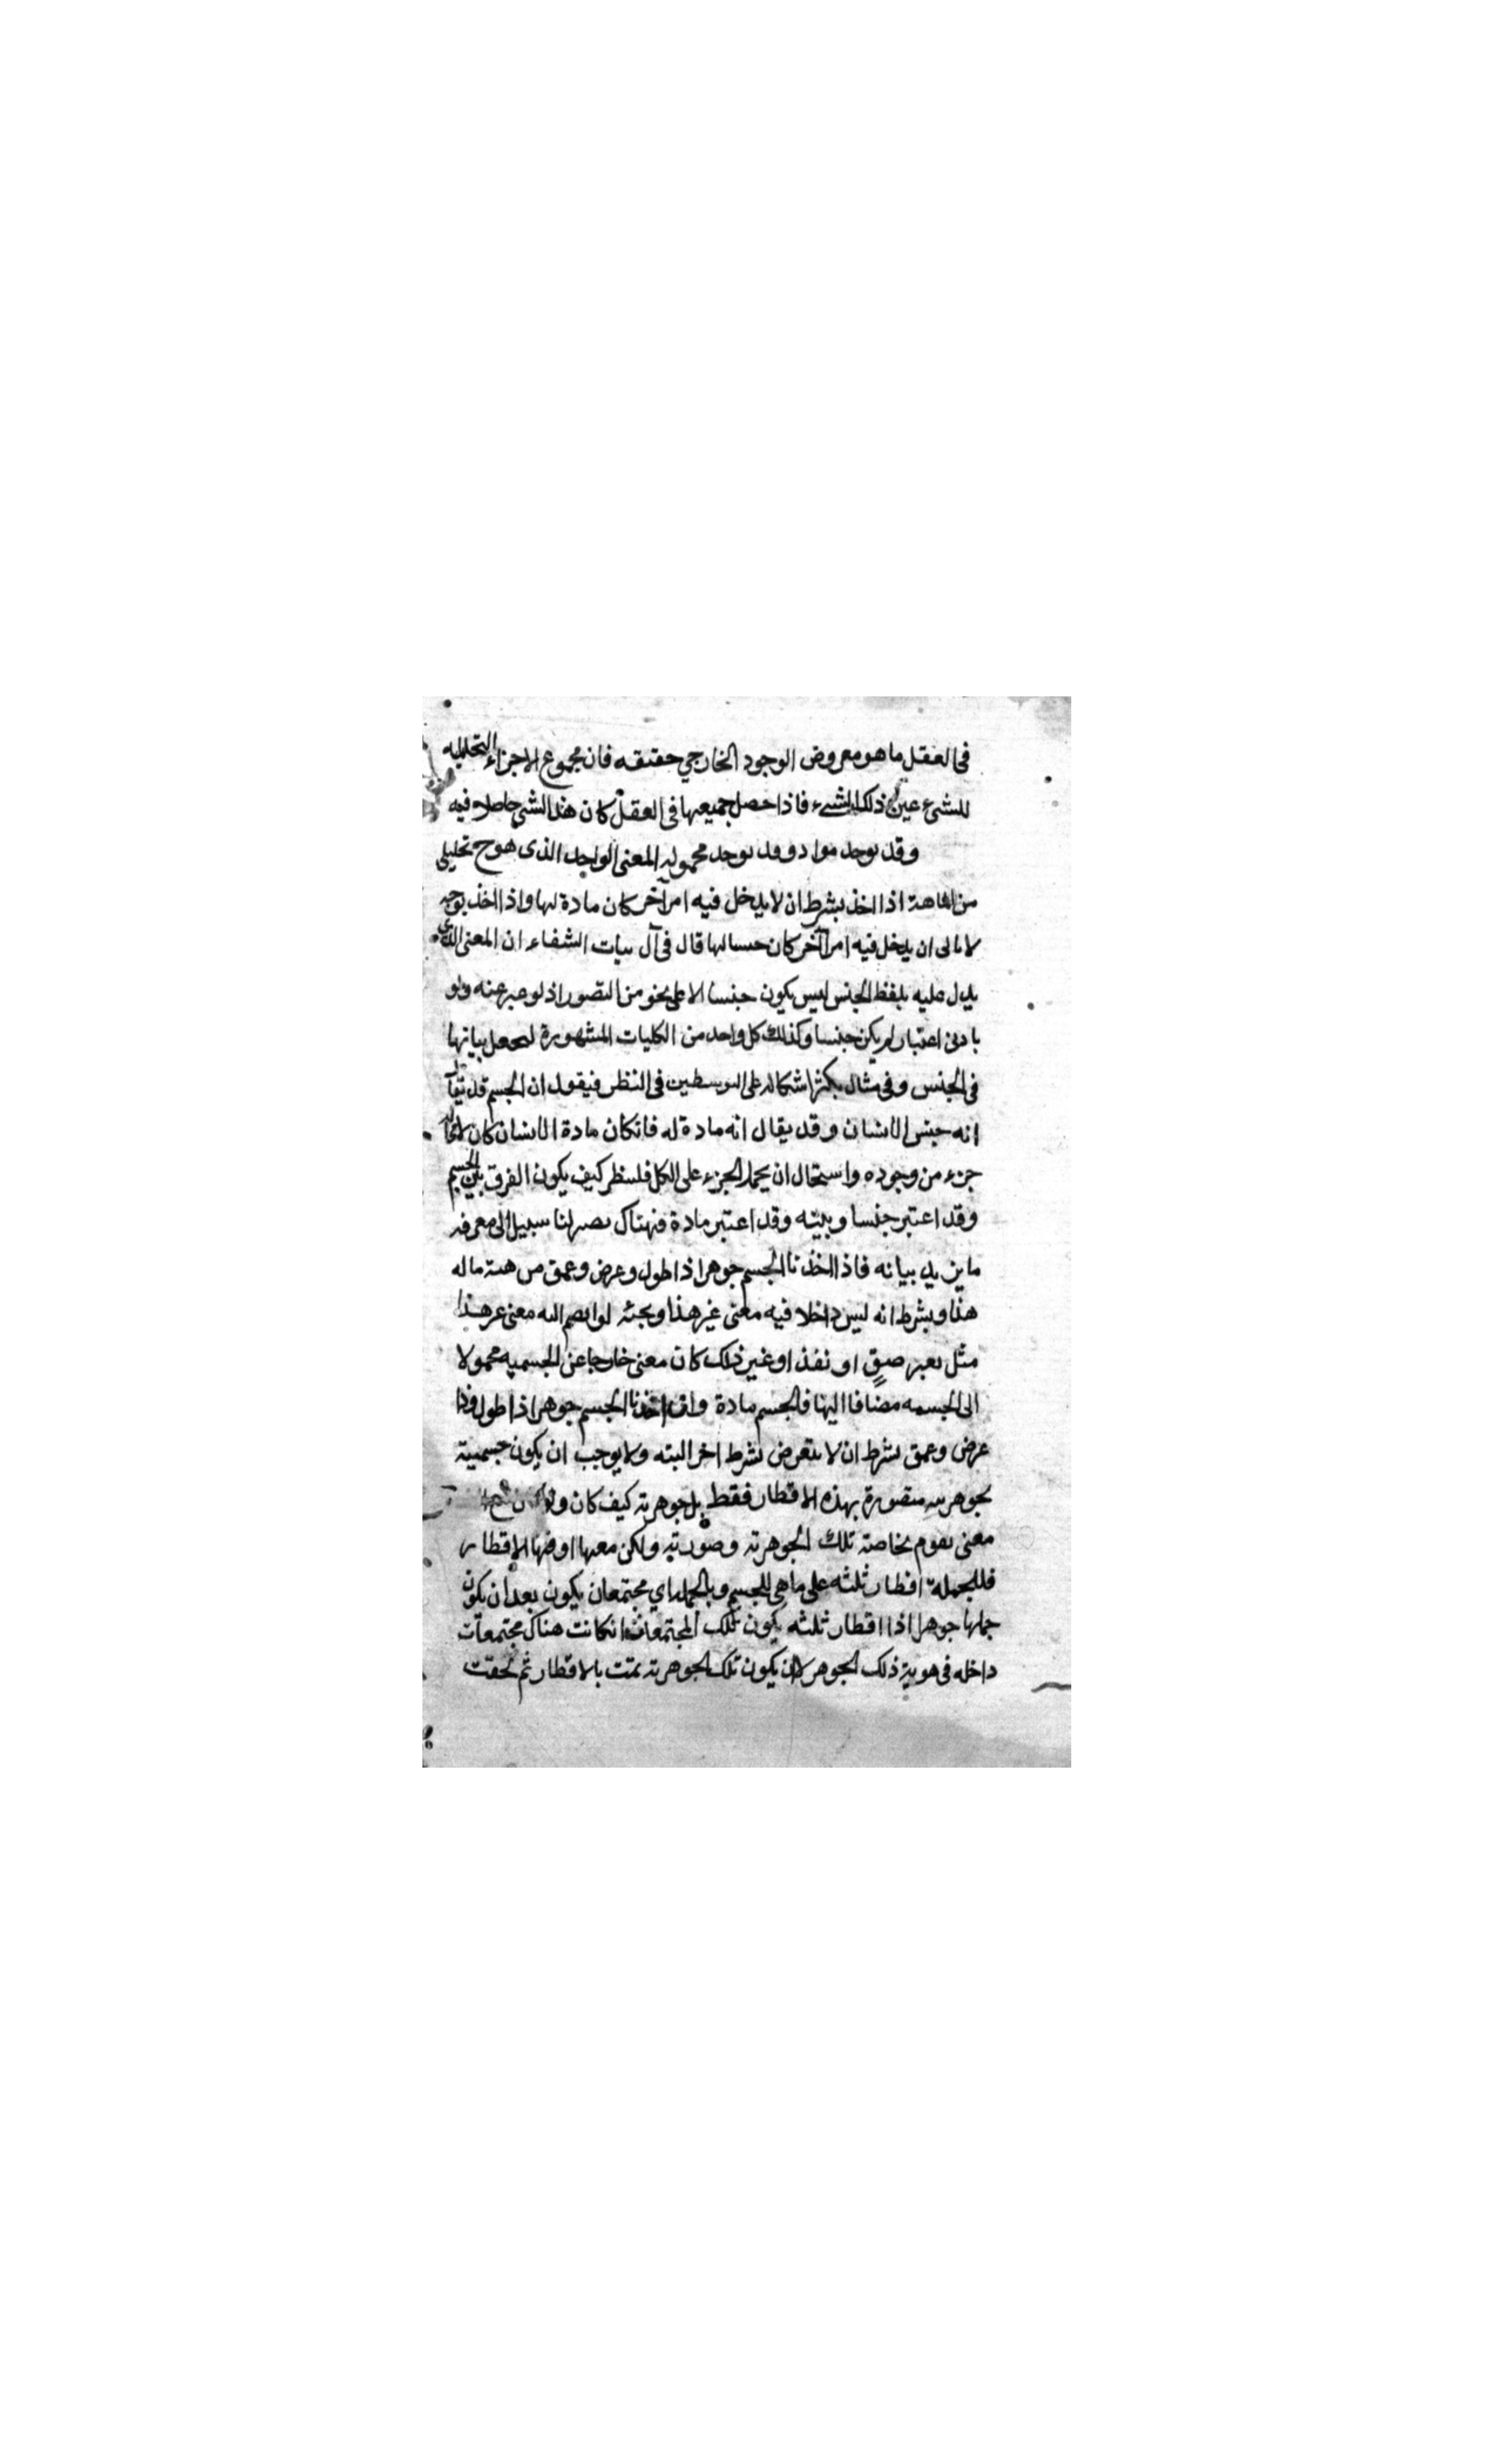 في العقل ما هو معروض الوجود الخارجي حقيقه فان مجموع الاجزاء التحليليه
للشيء عين ذلك الشيء فاذا حصل جميعها في العقل كان هذا الشي حاصلا فيه
وقد يوجد مواد وقد يوجد محموله المعنى الواحد الذي هو ح تحليلي
من الماهية اذا اخذ بشرط ان لا يدخل فيه امر آخر كان مادة لها واذا اخذ بوجه
لا يالى ان يدخل فيه امر آخر كان جنسا لها قال في آلهيات الشفاء ان المعنى الذي
يدل عليه بلفظ الجنس ليس يكون جنسا الا على نحو من التصور اذ لو عبر عنه ولو
بادنى اعتبار لم يكن جنسا وكذلك كل واحد من الكليات المشهورة لنجعل بيانها
في الجنس وفي مثال يكثر اشكاله على المتوسطين في النظر فيقول ان الجسم قد يقآل
انه جنس الانسان وقد يقال انه مادة له فانكان مادة الانسان كان لامحاله
جزء من وجوده واستحال ان يحمل الجزء على الكل فلننظر كيف يكون الفرق بين الجسم
وقد اعتبر جنسا وبينه وقد اعتبر مادة فهناك يصير لنا سبيل الى معرفه
ما نريد بيانه فاذا اخذنا الجسم جوهرا ذا طول وعرض وعمق من جهة ما له
هذا وبشرط انه ليس داخلا فيه معنى غير هذا وبحيث لو انضم اليه معنى غير هذا
مثل او غير ذلك كان معنى خارجا عن الجسميه محمولا
الى الجسميه مضافا اليها فالجسم مادة وان اخذنا الجسم جوهرا ذا طول وذا
عرض وعمق بشرط ان لا يتعرض بشرط اخر البته ولا يوجب ان يكون جسمية
بجوهريته متصورة بهذه الاقطار فقط بل جوهريته كيف كان ولو
معنى يقوم بخاصته تلك الجوهرية وصورته ولكن معها او فيها الاقطار
فللجملة اقطار ثلثه على ما هي للجسم وبالجمله اي مجتمعات يكون بعد ان يكون
جملتها جوهرا ذا اقطار ثلثه يكون تلك المجتمعات انكانت هناك مجتمعات
داخله في هوية ذلك الجوهر لا ان يكون تلك الجوهرية تمت بالاقطار ثم لحقت